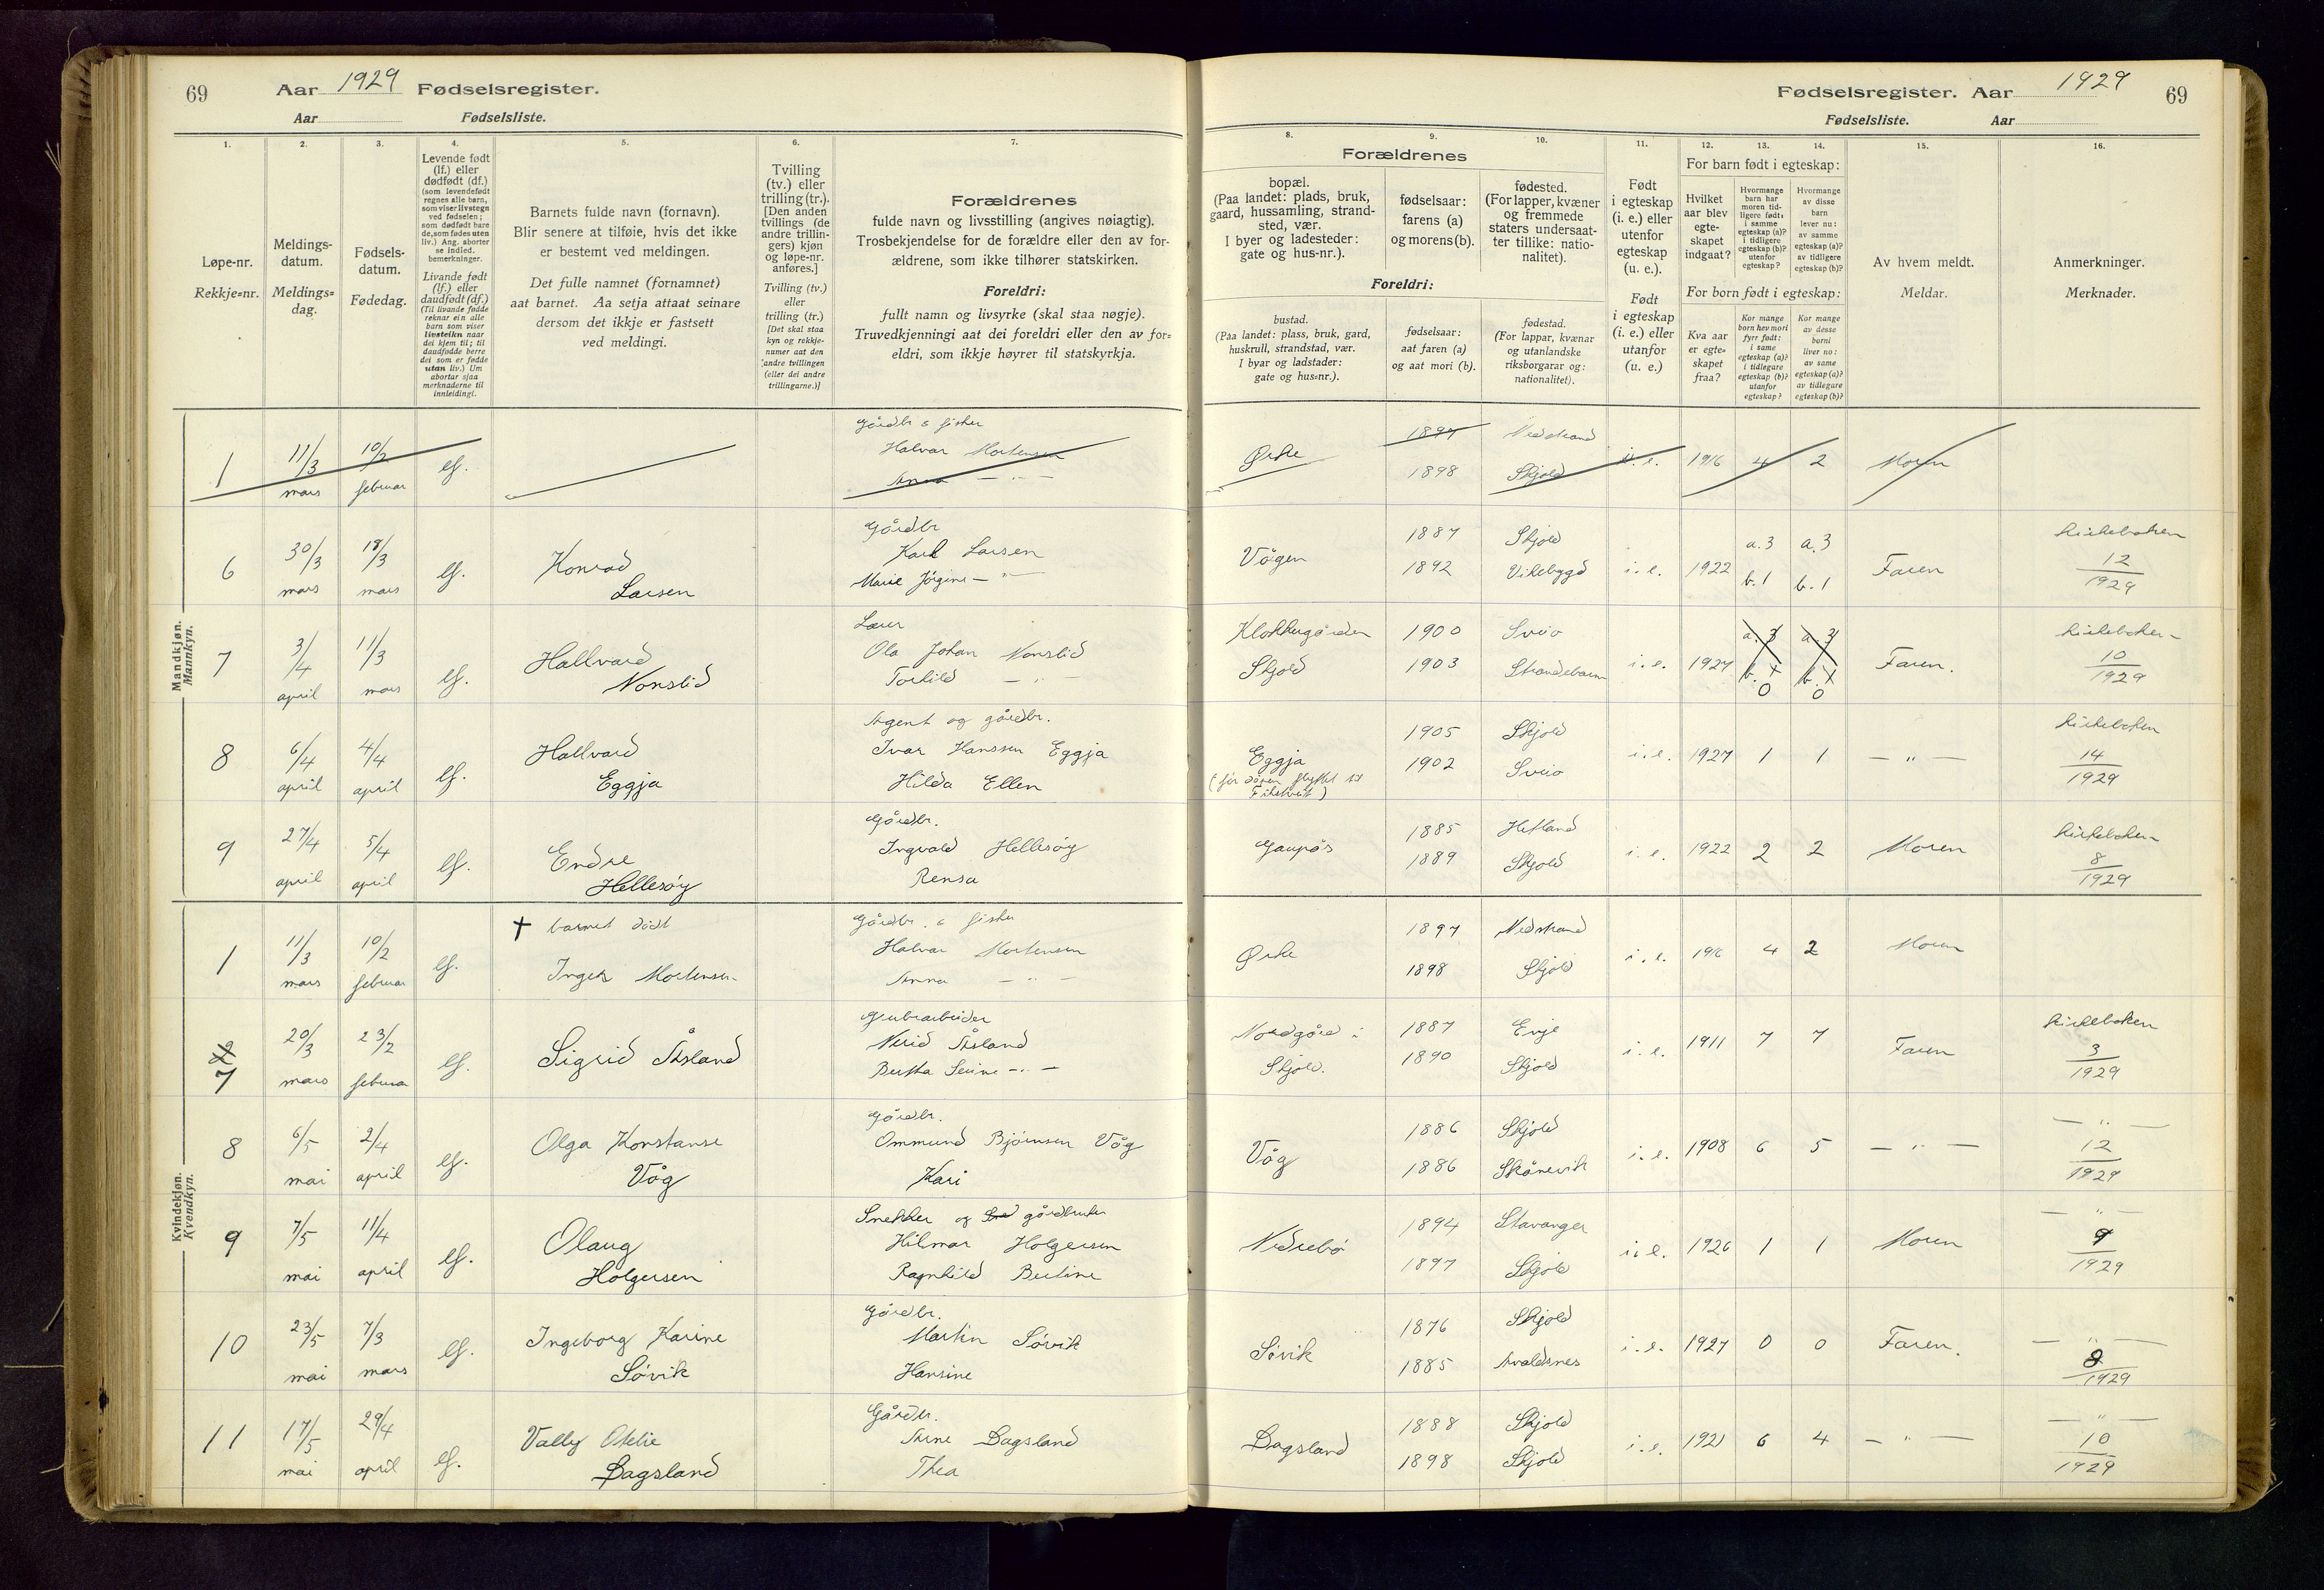 69 Aar 1929 Fødselsregister.
Aar Fødselsliste.
Fødselsregister. Aar 1929 69
Fødselsliste. Aar
1.
Løpe-nr.
Rekkje=nr.
2.
Meldings-
datum.
Meldings=
dag.
3.
Fødsels-
datum.
Fødedag.
4.
Levende født
(lf.) eller
dødfødt (df.)
(som levendefødt
regnes alle barn,
som viser livstegn
ved fødselen;
som dødfødt bare
de, som fødes uten
liv.) Ang. aborter
se indled.
bemerkninger.
Livande født
(lf.) eller
daudfødt (df.)
(Til livande fødde
reknar ein alle
barn som viser
livsteikn naar
dei kjem til; til
daudfødde berre
dei som er fødde
utan liv.) Um
abortar sjaa
merknaderne til
innleidingi.
5.
Barnets fulde navn (fornavn).
Blir senere at tilføie, hvis det ikke
er bestemt ved meldingen.
Det fulle namnet (fornamnet)
aat barnet. Aa setja attaat seinare
dersom det ikkje er fastsett
ved meldingi.
6.
Tvilling
(tv.) eller
trilling (tr.).
[Den anden
tvillings (de
andre trillin-
gers) kjøn
og løpe-nr.
anføres.]
Tvilling (tv.)
eller
trilling (tr.)
[Det skal staa
kyn og rekkje-
numer aat den
andre tvillingen
(eller dei andre
trillingarne.)]
7.
Forældrenes
fulde navn og livsstilling (angives nøiagtig).
Trosbekjendelse for de forældre eller den av for-
ældrene, som ikke tilhører statskirken.
Foreldri:
fullt namn og livsyrke (skal staa nøgje).
Truvedkjenningi aat dei foreldri eller den av for=
eldri, som ikkje høyrer til statskyrkja.
Forældrenes
8.
bopæl.
(Paa landet: plads, bruk,
gaard, hussamling, strand-
sted, vær.
I byer og ladesteder:
gate og hus-nr.).
9.
fødselsaar:
farens (a)
og morens (b).
10.
fødested.
(For lapper, kvæner
og fremmede
staters undersaat-
ter tillike: natio-
nalitet).
Foreldri:
bustad.
(Paa landet: plass, bruk, gard,
huskrull, strandstad, vær.
I byar og ladstader:
gate og hus=nr.).
fødselsaar:
aat faren (a)
og aat mori (b).
fødestad.
(For lappar, kvænar
og utanlandske
riksborgarar og:
nationalitet).
11.
Født
i egteskap
(i. e.) eller
utenfor
egteskap
(u. e.).
Født
i egteskap
(i. e.) eller
utanfor
(u. e.)
12. 13. 14.
For barn født i egteskap:
Hvilket
aar blev
egte-
skapet
indgaat?
Hvormange
barn har
moren tid-
ligere født:
i samme
egteskap (a)?
i tidligere
egteskap (b)?
utenfor
egteskap?
Hvormange
av disse
barn
lever nu:
av samme
egteskap (a)?
av tidligere
egteskap (b)?
For born født i egteskap:
Kva aar
er egte=
skapet
fraa?
Kor mange
born hev mori
fyrr født:
i same
egteskap (a)?
i tidlegare
egteskap (b)?
utanfor
egteskap?
Kor mange
av desse
borni
liver no:
av same
egteskap (a)?
av tidlegare
egteskap (b)?
15.
Av hvem meldt.
Meldar.
16.
Anmerkninger.
Merknader.
Mandkjøn.
Mannkyn.
1 11/3 mars 10/2 februar lf.
Gårdbr & fisker
Halvar Mortensen
Anna — " —
Ørke 1897 1898 Nedstrand Skjold i. e. 1916 4 2 Moren
6 30/3 mars 18/3 mars lf. Konrad
Larsen
Gårdbr
Karl Larsen
Marie Jörgine — " —
Vågen 1887 1892 Skjold Vikebygd i. e. 1922 a. 3 b. 1 a. 3 b. 1 Faren kirkeboken
12
1929
7 3/4 april 11/3 mars lf. Hallvard
Nonslid
Lærer
Ola Johan Nonslid
Torhild — " —
Klokkergården
Skjold 1900 1903 Sveio Strandebarm i. e. 1927 0 0 Faren. kirkeboken
10
1929
8 6/4 april 4/4 april lf. Hallvard
Eggja
Agent og gårdbr.
Ivar Hanssen Eggja
Hilda Ellen
Eggja
1905 1902 Skjold Sveio i. e. 1927 1 1 — " — kirkeboken
14
1929
9 27/4 april 5/4 april lf. Endre
Hellesöy
Gårdbr.
Ingvald Hellesöy
Rensa
Gaupås 1885 1889 Hetland Skjold i. e. 1922 2 2 Moren kirkeboken
8
1929
Kvindekjøn.
Kvendkyn.
1 11/3 mars 10/2 februar lf. † barnet dödt
Inger Mortensen
Gårdbr. & fisker
Halvar Mortensen
Anna — " —
Ørke 1897 1898 Nedstrand Skjold i. e. 1916 4 2 Moren
7 20/3 mars 23/2 februar lf. Sigrid Åsland
Grubearbeider
Nerid Åsland
Bertha Serine — " —
Nordgård i
Skjold. 1887 1890 Evje Skjold i. e. 1911 7 7 Faren kirkeboken
3
1929
8 6/5 mai 2/4 april lf. Olga Konstanse
Våg
Gårdbr.
Ommund Bjørnsen Våg
Kari
Våg 1886 1886 Skjold Skånevik i. e. 1908 6 5 — " — — " —
12
1929
9 7/5 mai 11/4 april lf. Olaug
Holgersen
Snekker og gårdbruker
Hilmar Holgersen
Ragnhild Bertine
Nedrebö 1894 1897 Stavanger Skjold i. e. 1926 1 1 Moren — " —
9
1929
10 23/5 mai 7/3 mars lf. Ingeborg Karine
Sövik
Gårdbr.
Martin Sövik
Hansine
Sövik 1876 1885 Skjold Avaldsnes i. e. 1927 0 0 Faren. — " —
8
1929
11 17/5 mai 29/4 april lf. Vally Otelie
Dagsland
Gårdbr.
Arne Dagsland
Thea
Dagsland 1888 1898 Skjold Skjold i. e. 1921 6 4 — " — — " —
10
1929